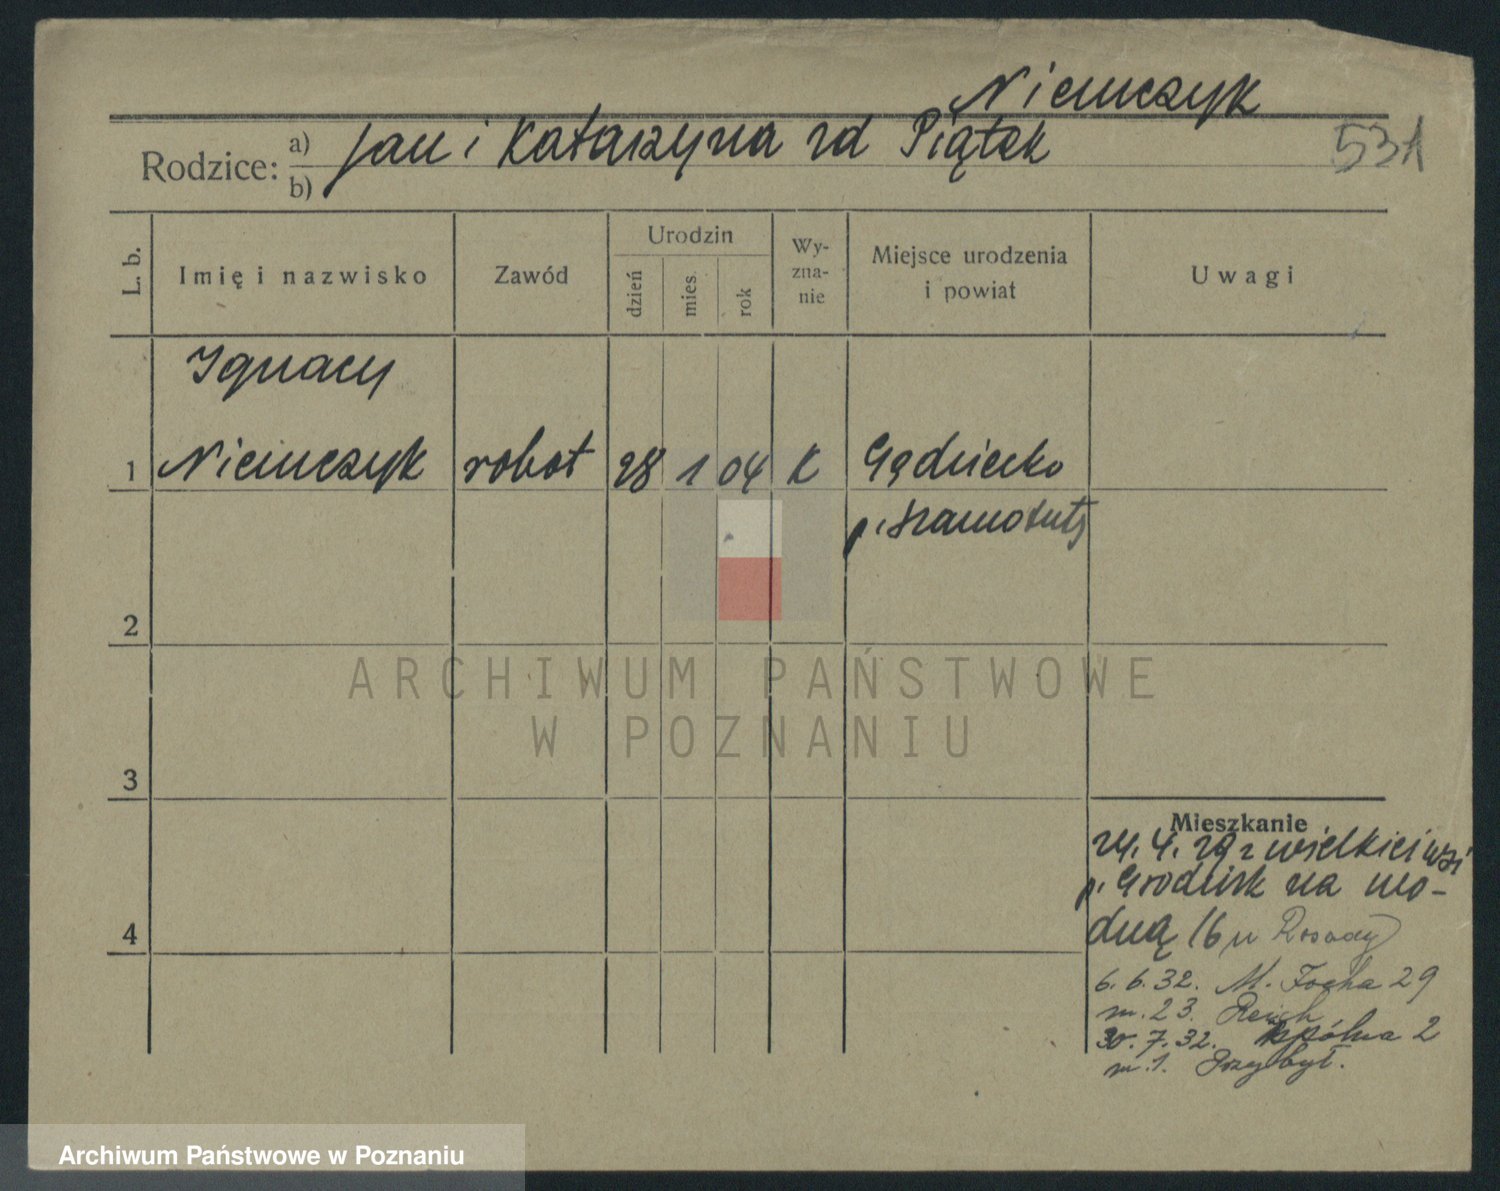 Niemczyk
Rodzice: a) Jan i Katarzyna zd Piątek
b)
531
L. b.
Imię i nazwisko
Zawód
Urodzin
dzień
mies.
rok
Wy-
zna-
nie
Miejsce urodzenia
i powiat
Uwagi
Ignacy
1 Niemczyk robot 28 1 04 K
p. Szamotuły
2
3
4
Mieszkanie
24. 4. 29 z wielkiej wsi
p. Grodzisk na mo-
dną 16 u
6. 6. 32. M. Focha 29
m. 23. Reich
30. 7. 32. Wspólna 2
m. 1. Przybył.
ARCHIWUM PAŃSTWOWE
W POZNANIU
Archiwum Państwowe w Poznaniu